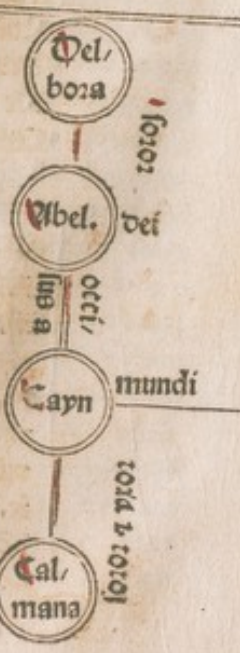 Del⸗
bora
soror
Abel.
dei
occi⸗
sus a
Cayn
mundi
soror ⁊ vxor
Cal⸗
mana